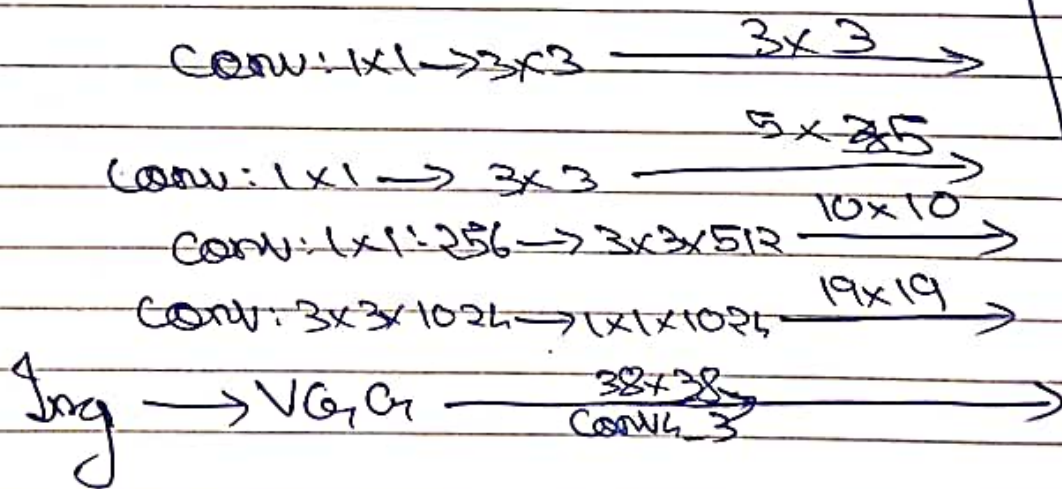 Conv: 1x1 → 3x3 3x3 →
Conv: 1x1 → 3x3 5x5 →
Conv: 1x1:256 → 3x3x512 10x10 →
Conv: 3x3x1024 → 1x1x1024 19x19 →
Img → VGG 38x38 →
Conv4_3